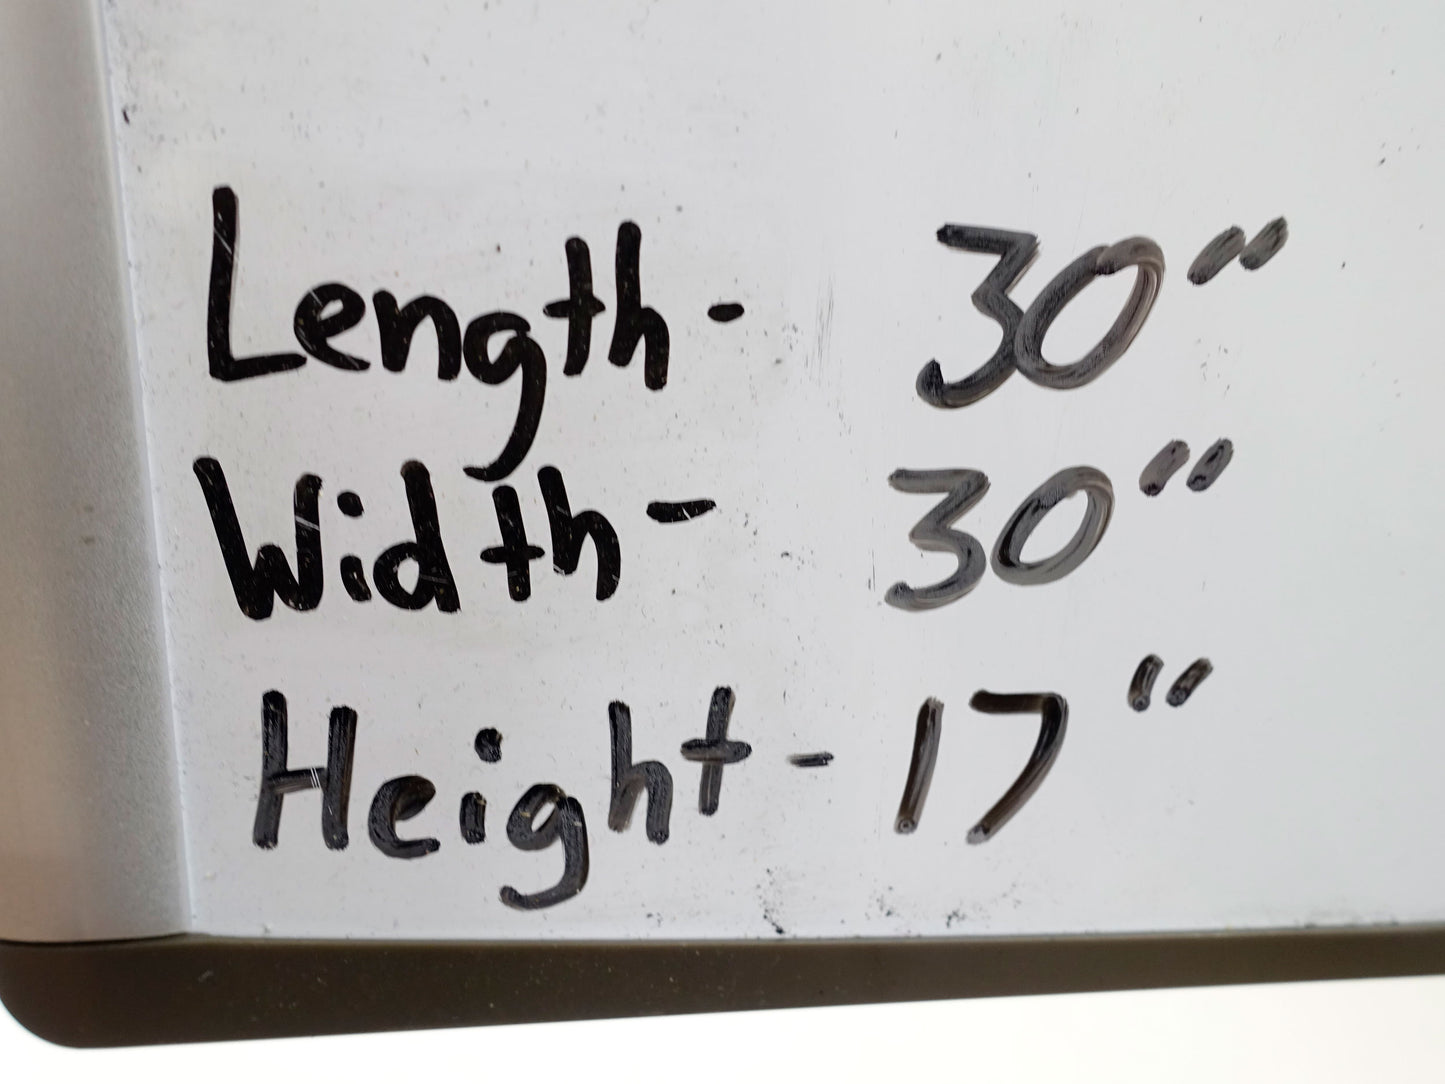 Length- 30"
Width- 30"
Height- 17"